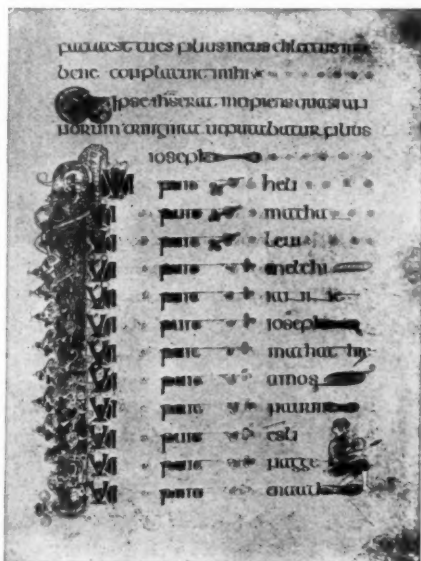 factaest tues filius meus dilectus inte
bene conplacuit mihi
Ipse ihs erat incipiens quasi an
norum triginta ut putabatur filius
ioseph
QUI fuit heli
QUI fuit matha
QUI fuit leui
QUI fuit melchi
QUI fuit
QUI fuit ioseph
QUI fuit mathathie
QUI fuit amos
QUI fuit nauum
QUI fuit esli
QUI fuit nagge
QUI fuit